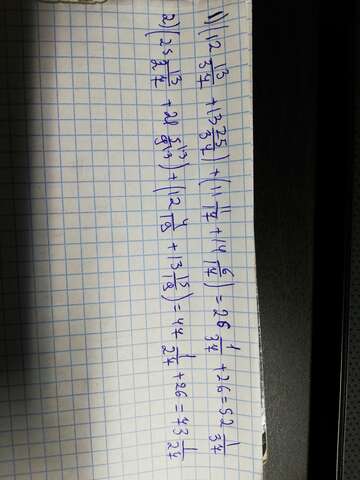 1) (12 13/37 + 13 25/37) + (11 11/17 + 14 6/17) = 26 1/37 + 26 = 52 1/37
2) (25 13/27 + 21 5/9) + (12 4/19 + 13 15/19) = 47 1/27 + 26 = 73 1/27